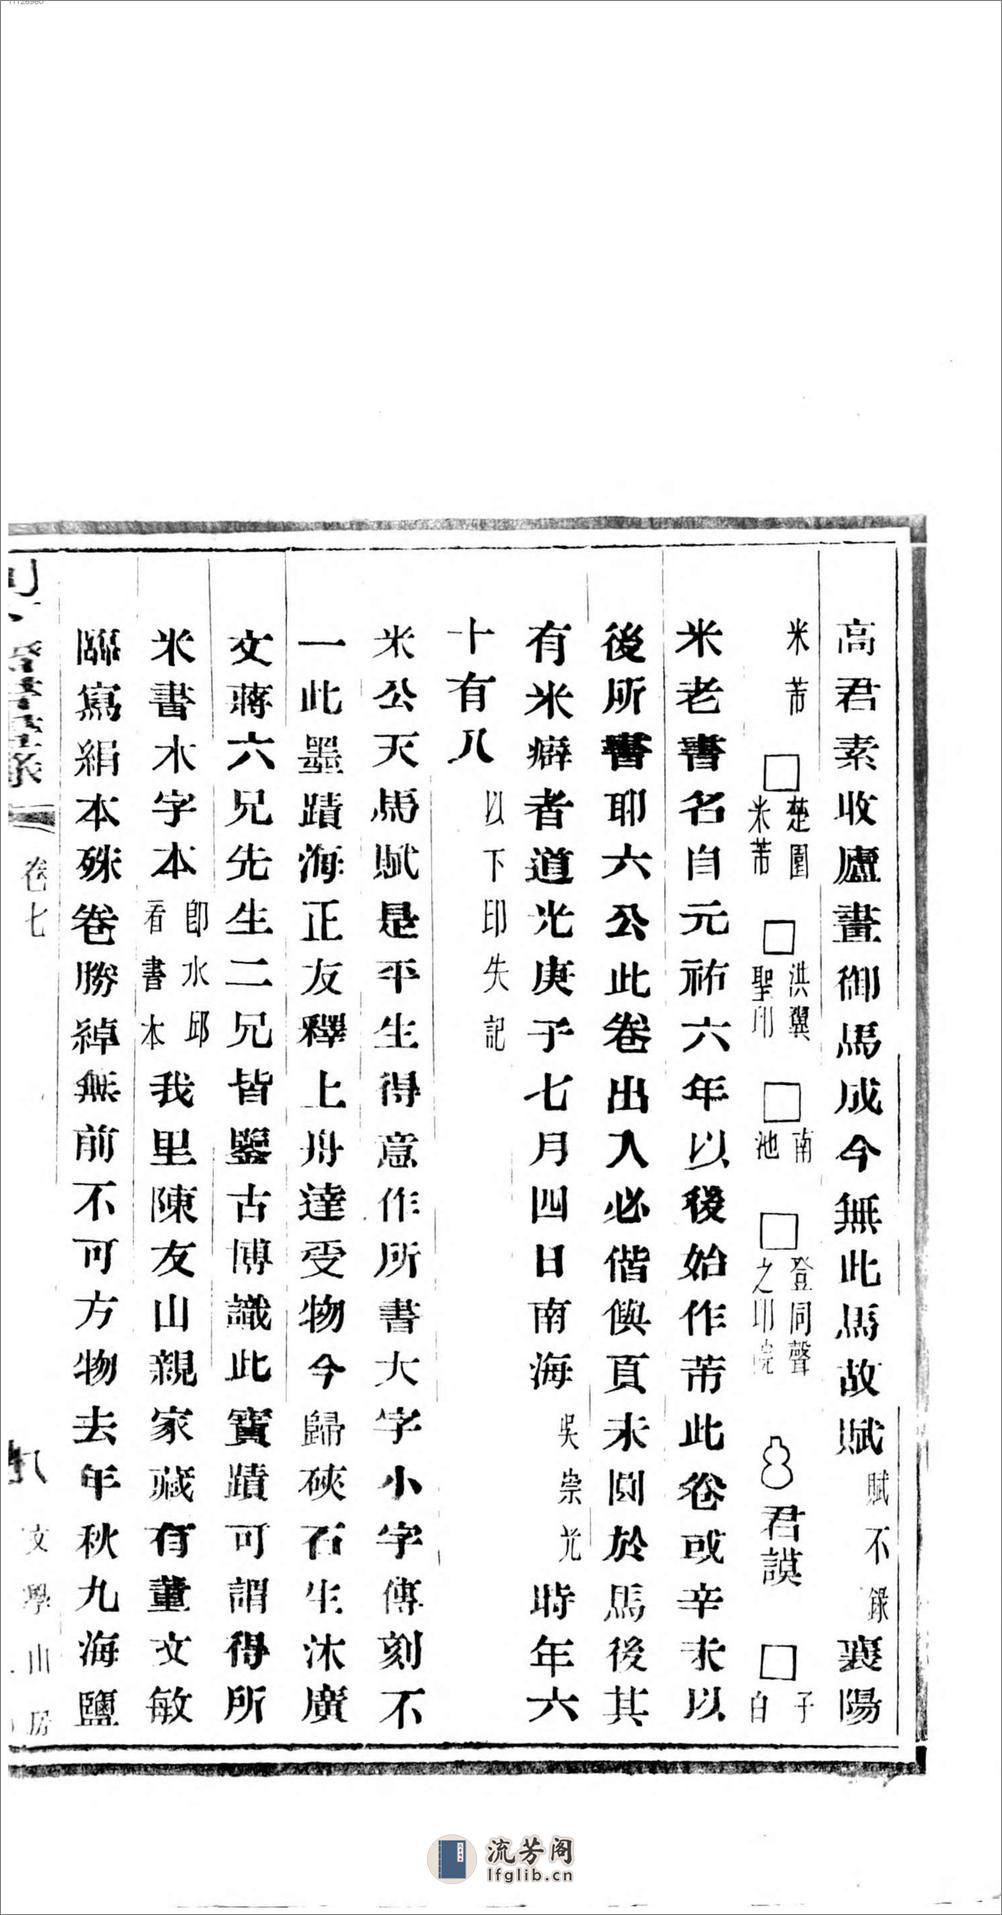 高君素收廬畫御馬成今無此馬故賦賦不錄襄陽
米芾□楚國米芾□洪翼聖印□南池□登同聲之印院君謨□子白
米老書名自元祐六年以後始作芾此卷或辛未以
後所書耶六公此卷出入必偕俟頁未圓於馬後其
有米癖者道光庚子七月四日南海吳崇光時年六
十有八以下印失記
米公天馬賦是平生得意作所書大字小字傳刻不
一此墨蹟海正友釋上舟達受物今歸硤石生沐廣
文蔣六兄先生二兄皆鑒古博識此寶蹟可謂得所
米書水字本卽水邱看書本我里陳友山親家藏有董文敏
臨寫絹本殊卷勝綽無前不可方物去年秋九海鹽
卷七
八
文學山房
流芳阁
lfglib.cn